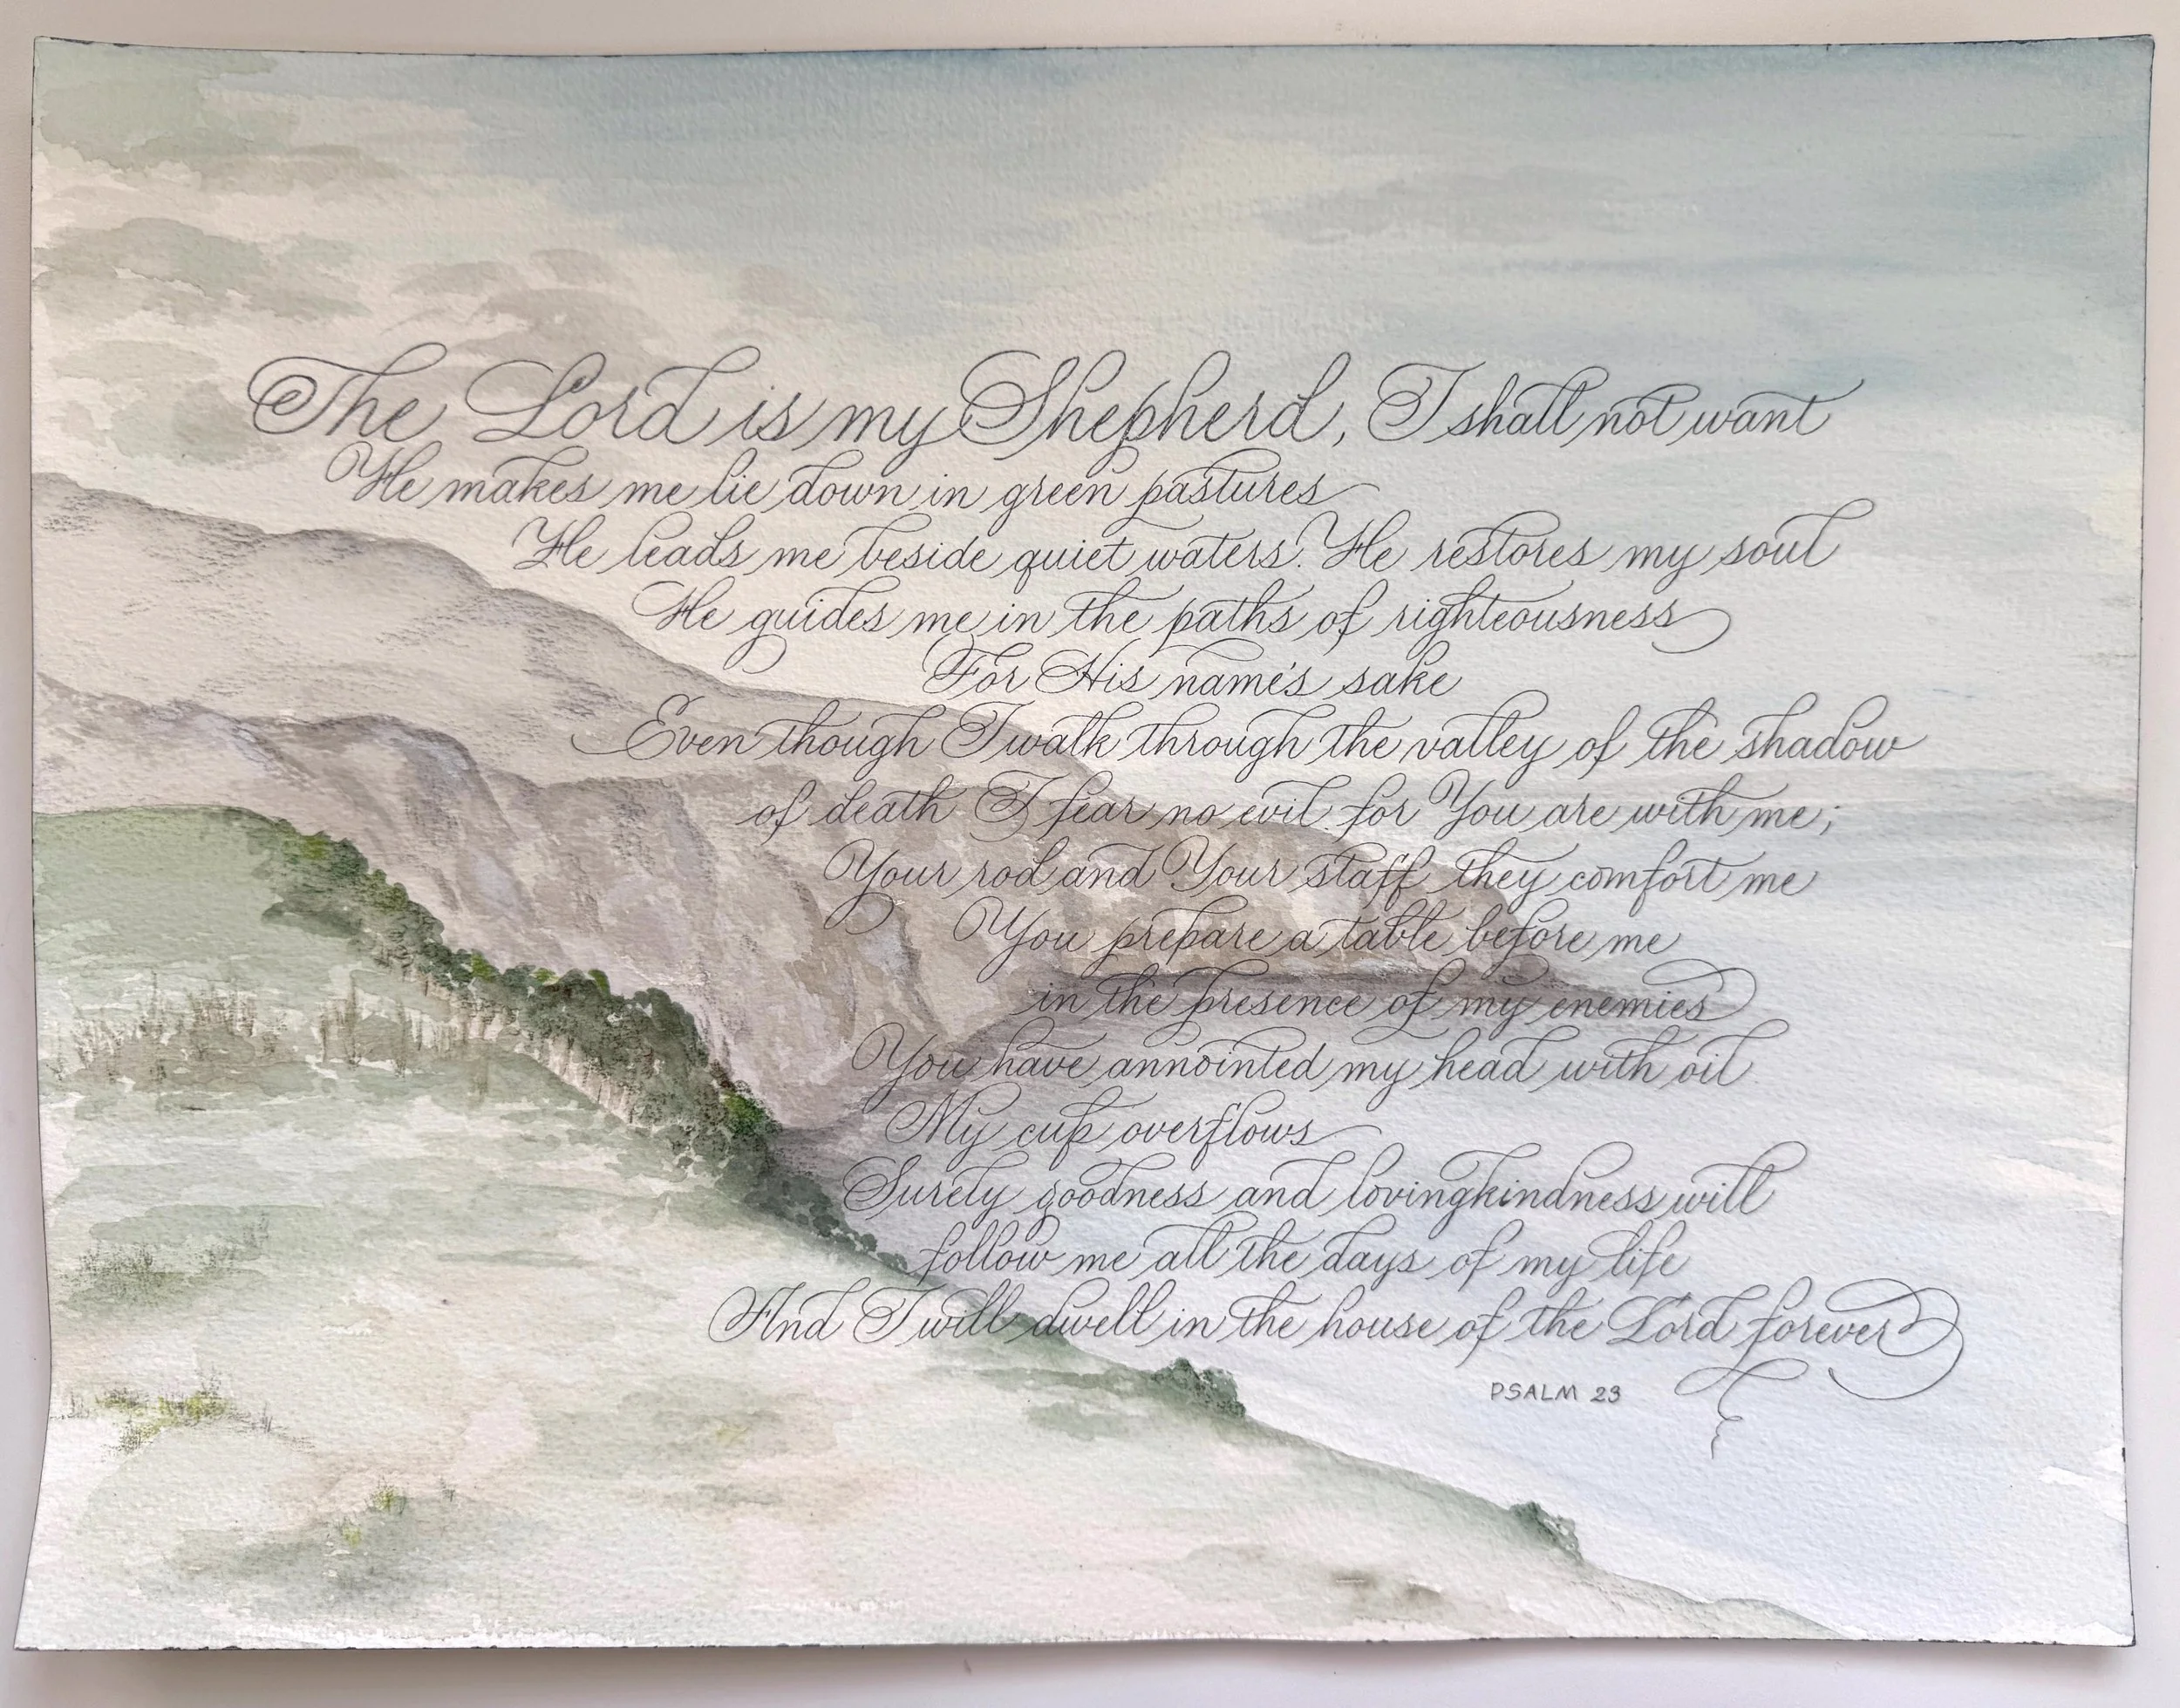 The Lord is my Shepherd, I shall not want
He makes me lie down in green pastures
He leads me beside quiet waters. He restores my soul
He guides me in the paths of righteousness
For His name's sake
Even though I walk through the valley of the shadow
of death I fear no evil for You are with me;
Your rod and Your staff they comfort me
You prepare a table before me
in the presence of my enemies
You have annointed my head with oil
My cup overflows
Surely goodness and lovingkindness will
follow me all the days of my life
And I will dwell in the house of the Lord forever
PSALM 23